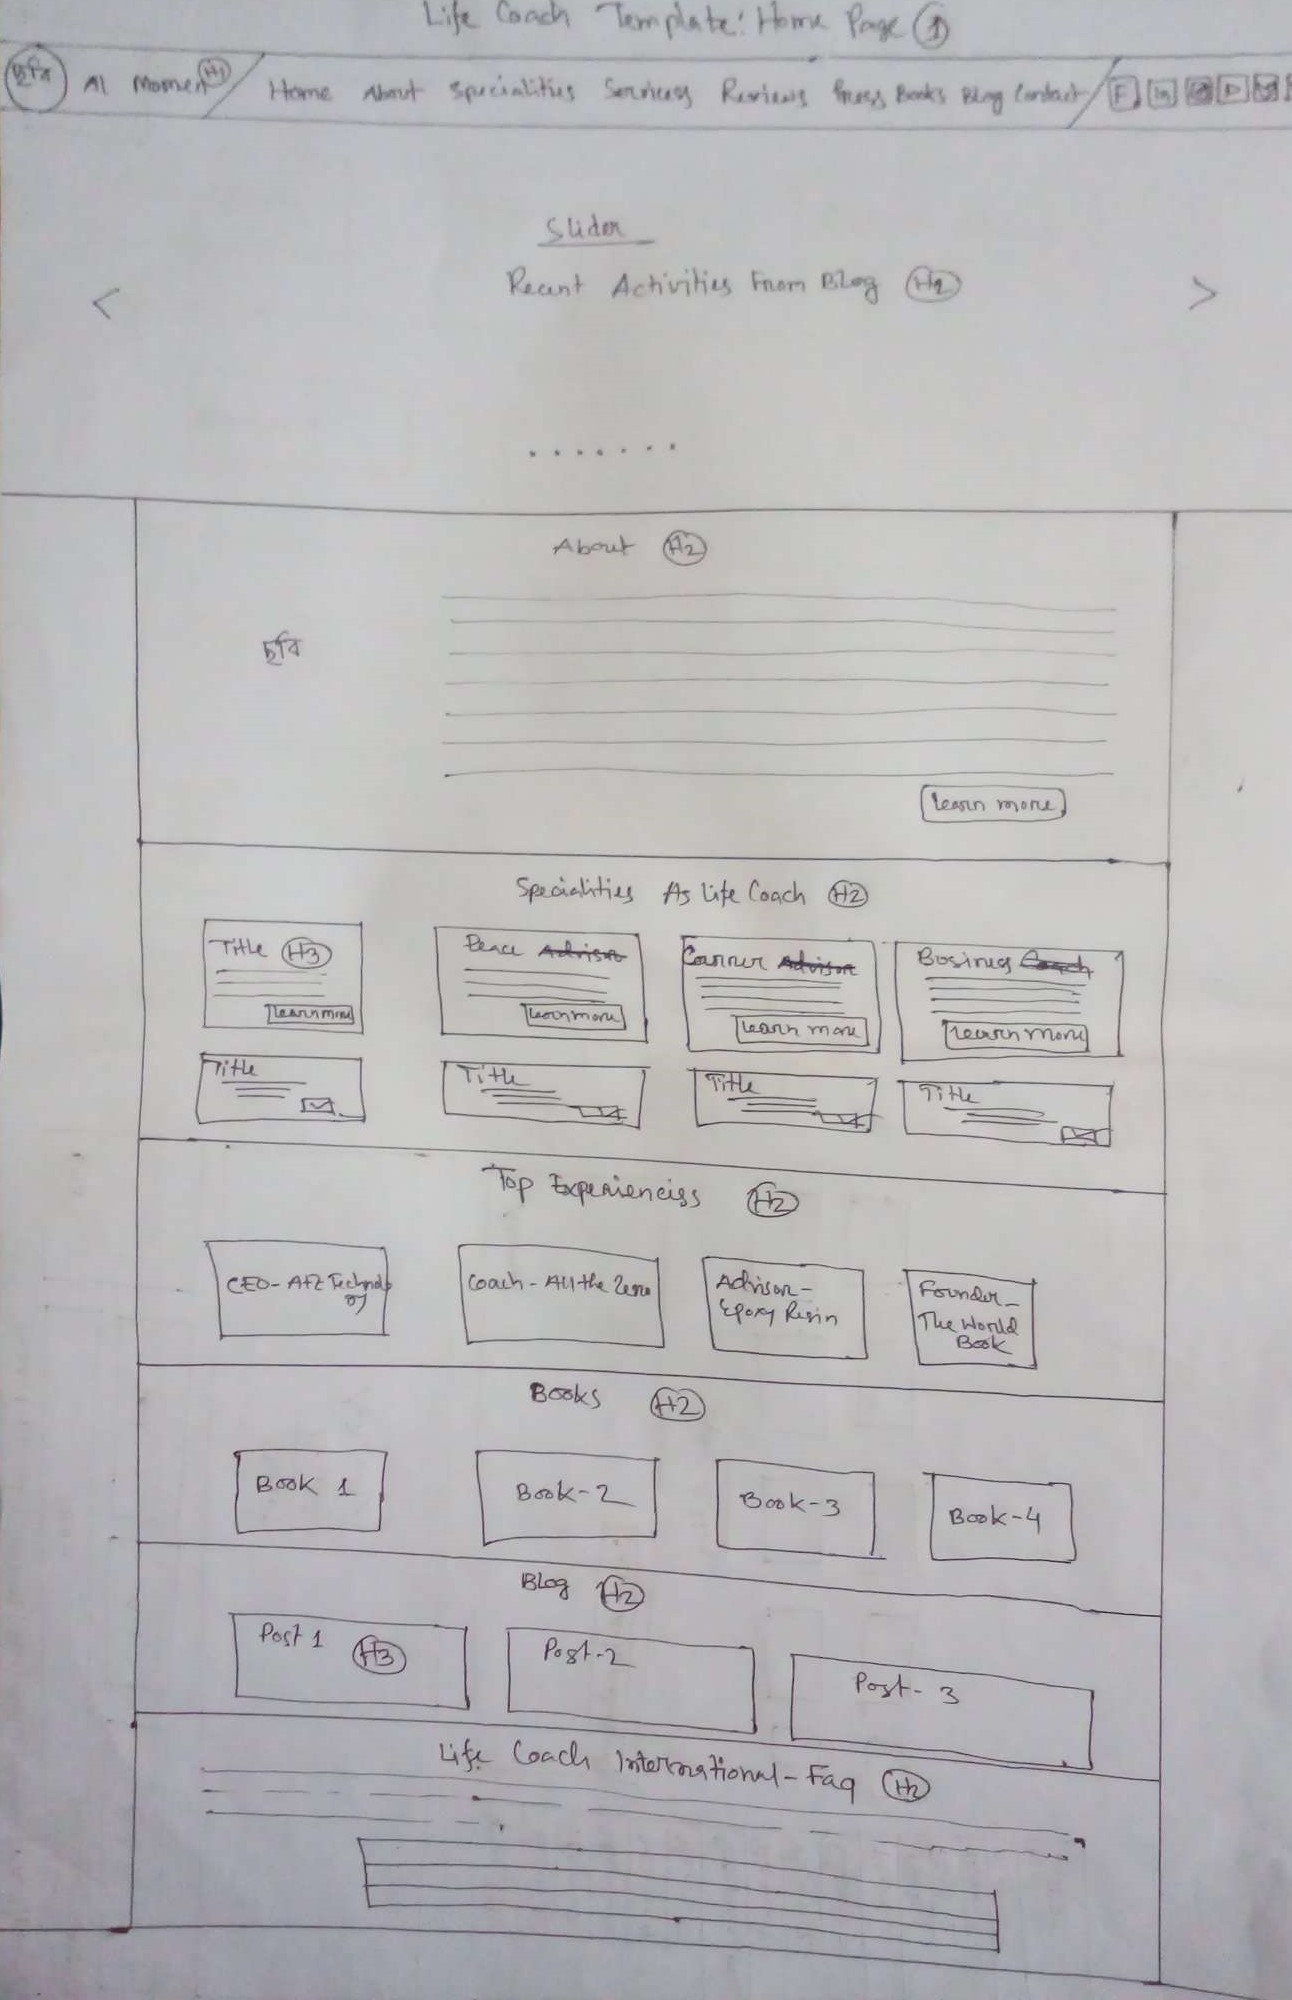 Life Coach Template: Home Page 1
ছবি Al Momen H1 Home About Specialities Services Reviews Press Books Blog Contact F in
Slider
< Recent Activities From Blog H2 >
About H2
ছবি
Learn more
Specialities As Life Coach H2
Title H3 Peace Advisor Carrier Advisor Business Coach
Learn more Learn more Learn more Learn more
Title Title Title Title
Top Experiencies H2
CEO-AFZ Technology Coach-All the Zero Advisor-Epoxy Resin Founder-The World Book
Books H2
Book 1 Book-2 Book-3 Book-4
Blog H2
Post 1 H3 Post-2 Post-3
Life Coach International-Faq H2